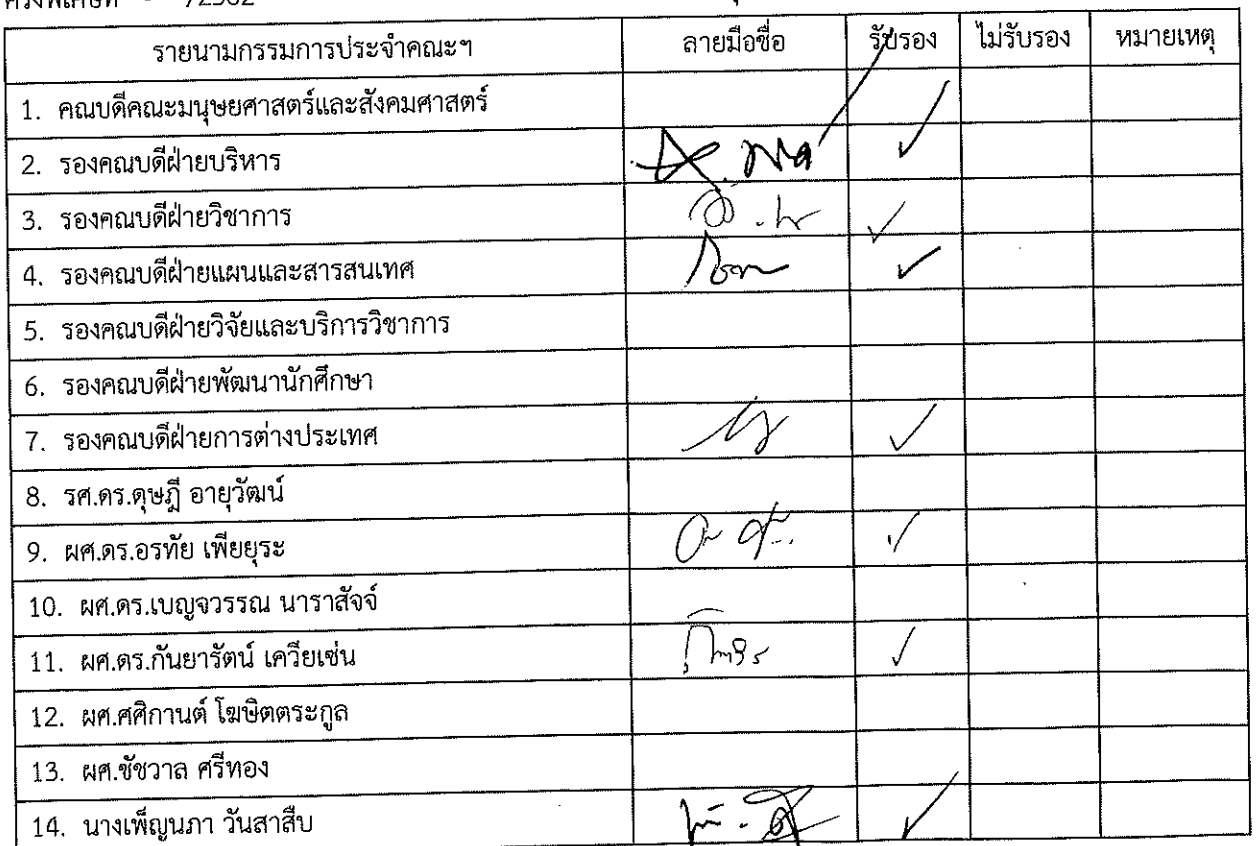 รายนามกรรมการประจำคณะฯ ลายมือชื่อ รับรอง ไม่รับรอง หมายเหตุ
1. คณบดีคณะมนุษยศาสตร์และสังคมศาสตร์
2. รองคณบดีฝ่ายบริหาร ✓
3. รองคณบดีฝ่ายวิชาการ ✓
4. รองคณบดีฝ่ายแผนและสารสนเทศ ✓
5. รองคณบดีฝ่ายวิจัยและบริการวิชาการ
6. รองคณบดีฝ่ายพัฒนานักศึกษา
7. รองคณบดีฝ่ายการต่างประเทศ ✓
8. รศ.ดร.ดุษฎี อายุวัฒน์
9. ผศ.ดร.อรทัย เพียยุระ ✓
10. ผศ.ดร.เบญจวรรณ นาราสัจจ์
11. ผศ.ดร.กันยารัตน์ เควียเซ่น ✓
12. ผศ.ศศิกานต์ โฆษิตตระกูล
13. ผศ.ชัชวาล ศรีทอง
14. นางเพ็ญนภา วันสาสืบ ✓